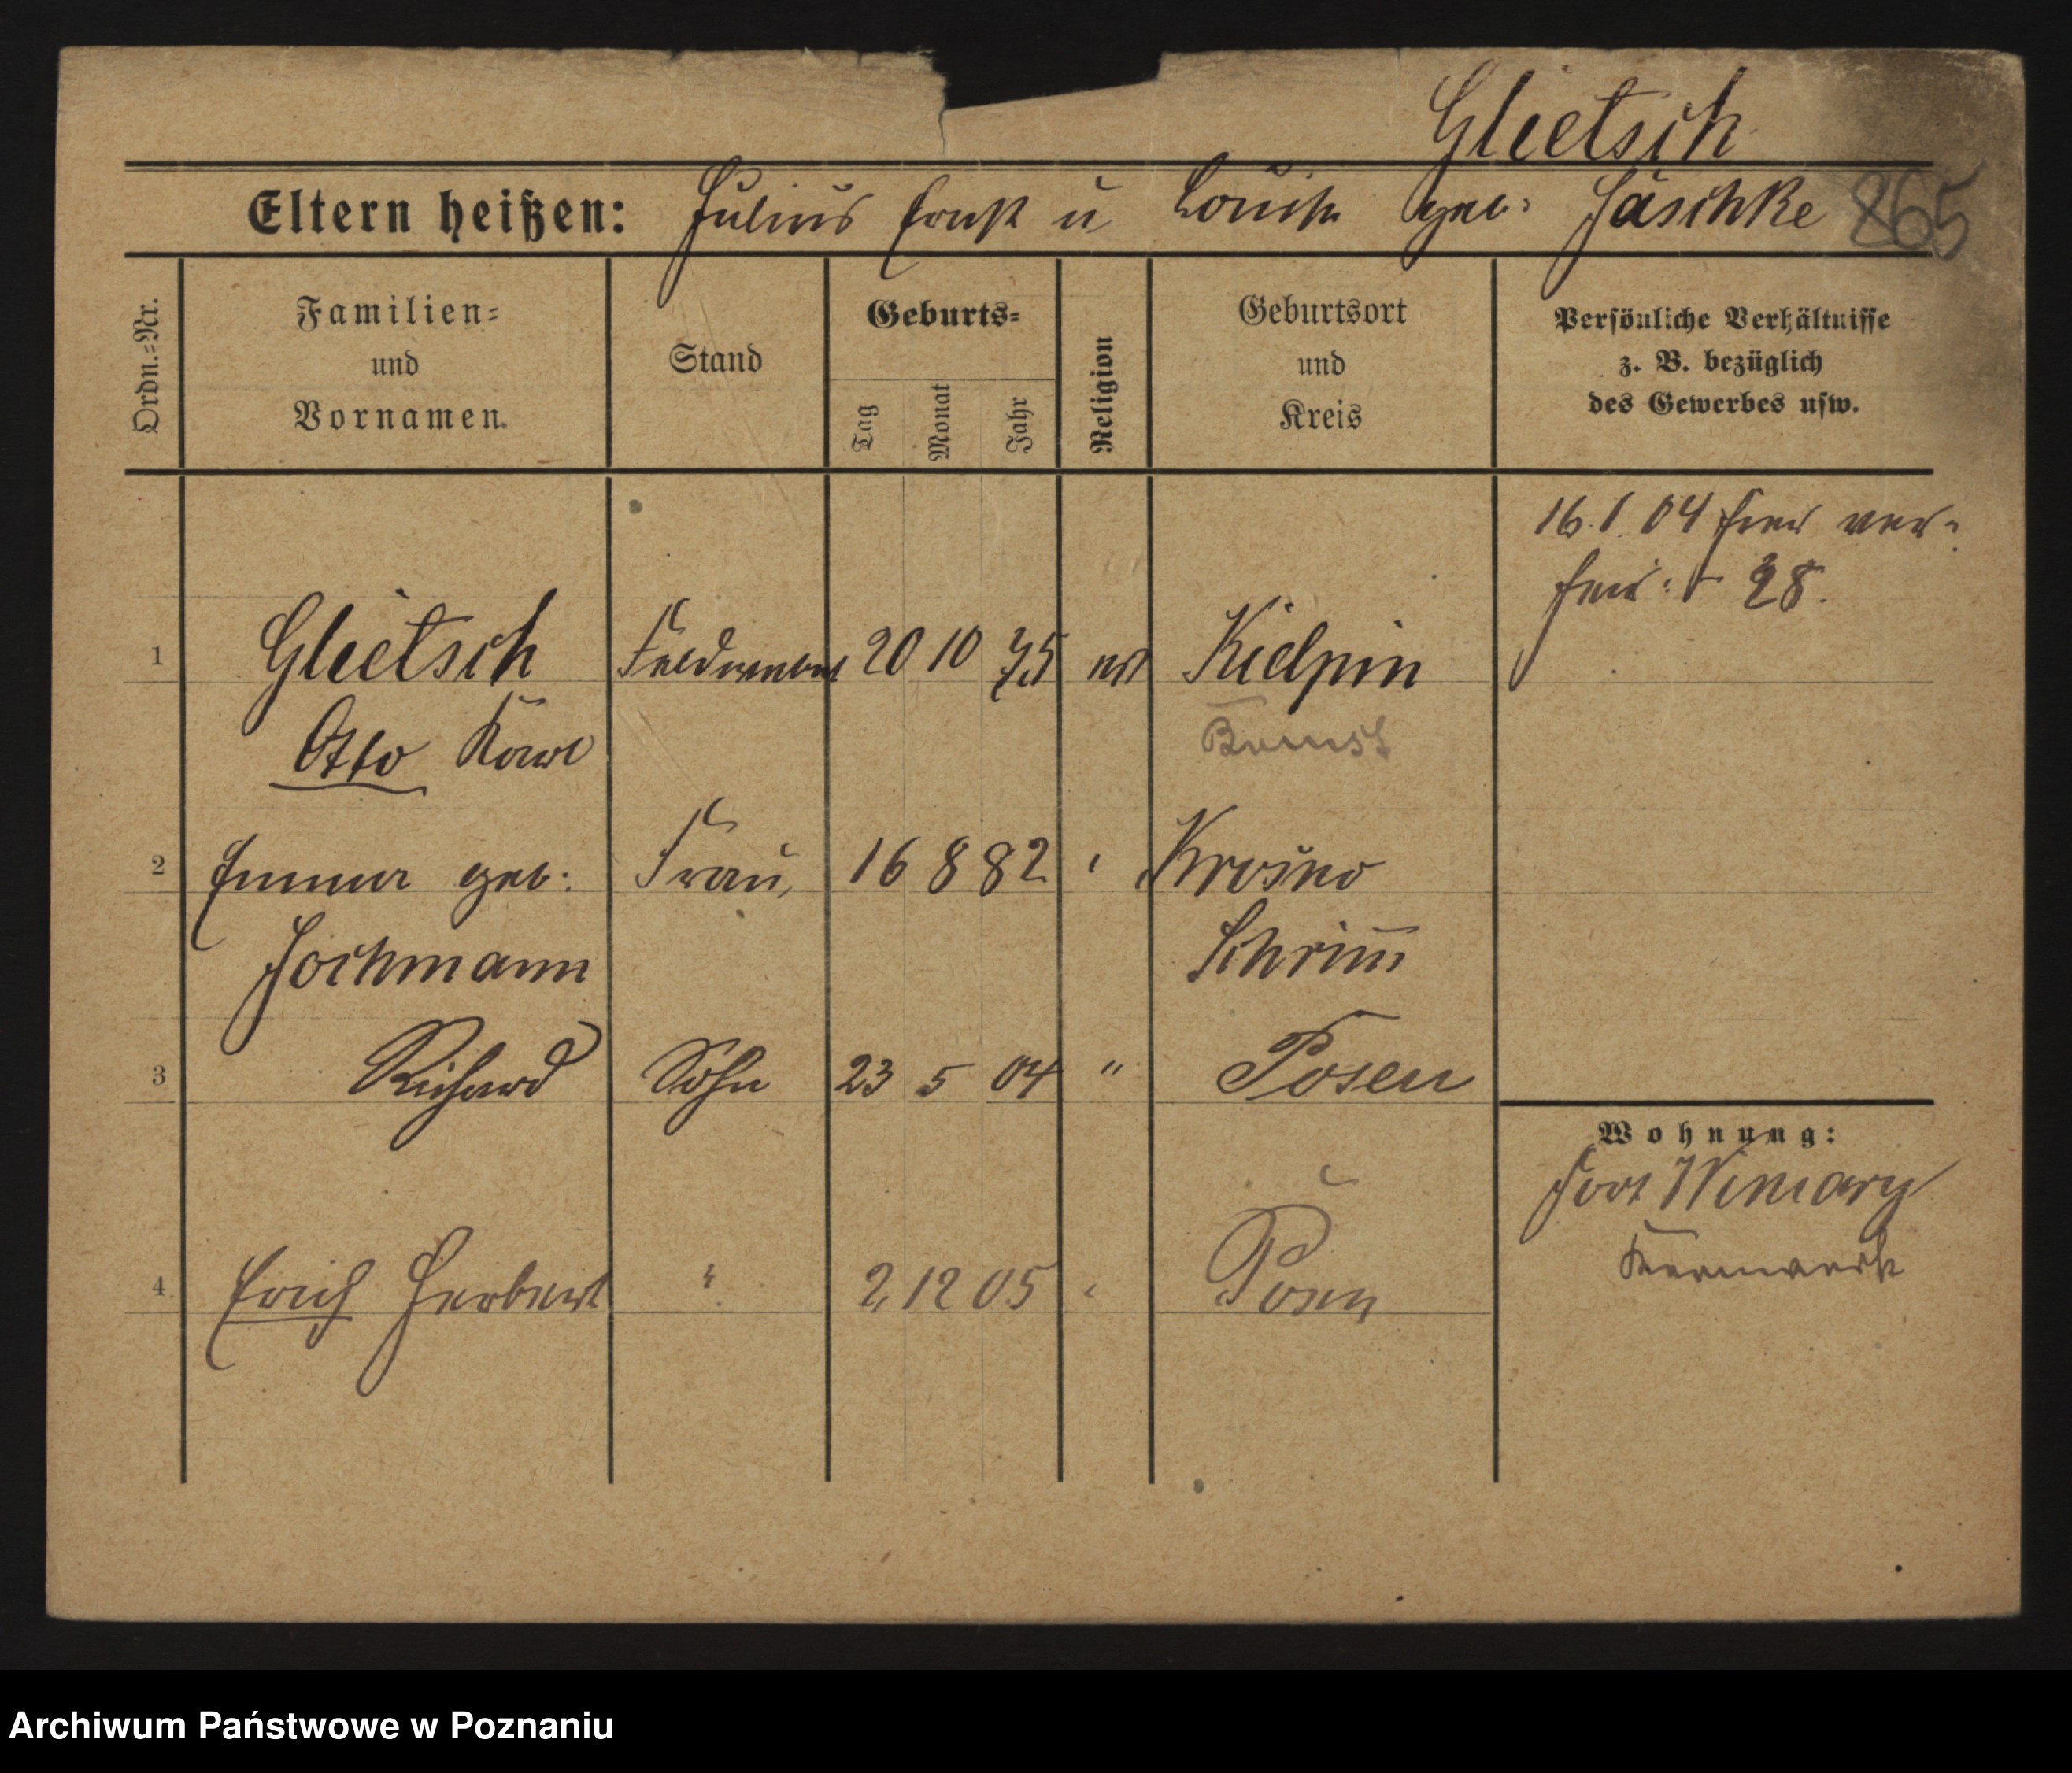 Glietsch
Eltern heißen: Julius Ernst u Louise geb: Jäschke 865
Ordn.=Nr.
Familien=
und
Vornamen.
Stand
Geburts=
Tag
Monat
Jahr
Religion
Geburtsort
und
Kreis
Persönliche Verhältnisse
z. B. bezüglich
des Gewerbes usw.
16.1.04 hier ver=
28.
1 Glietsch 20 10 75 Kielpin
Otto Karl Bomst
2 Emma geb: Frau 16 8 82 " Krosno
Jochmann Schrimm
3 Richard Sohn 23 5 04 " Posen
Wohnung:
Fort Winiary
Kernwerk
4 Erich Herbert " 2 12 05 " Posen
Archiwum Państwowe w Poznaniu